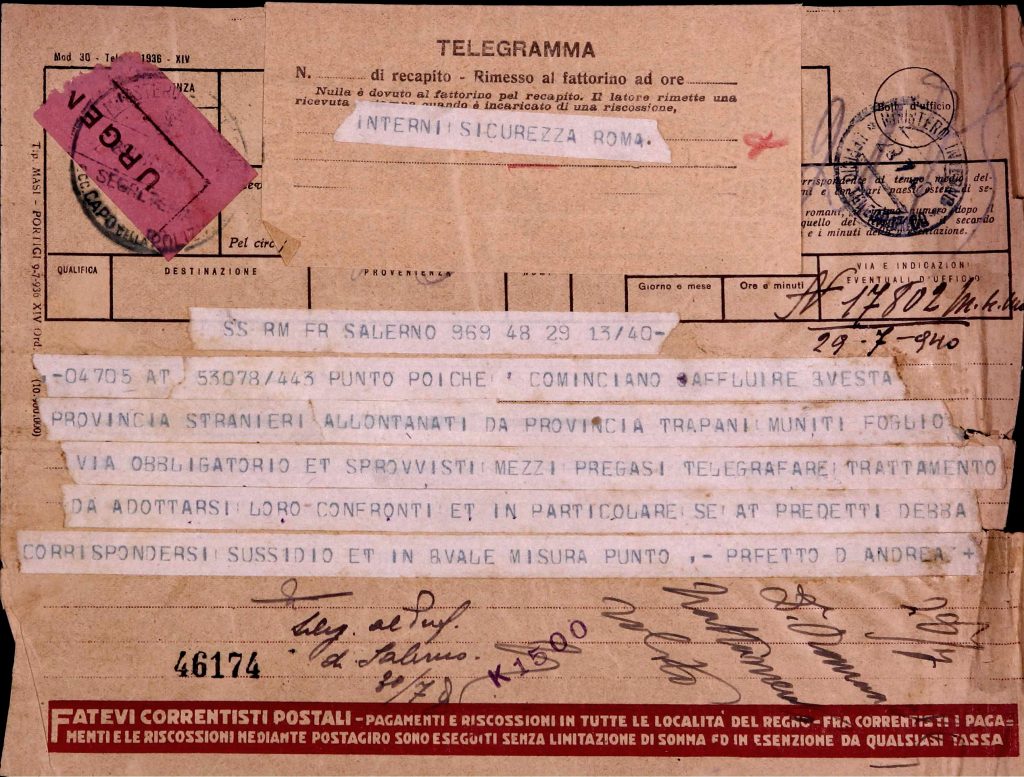 Mod 30 - 1936 - XIV
TELEGRAMMA
N. di recapito - Rimesso al fattorino ad ore
Nulla è dovuto al fattorino pel recapito. Il latore rimette una
ricevuta quando è incaricato di una riscossione,
INTERNI SICUREZZA ROMA.
URGEN
SEGRE
Bollo d'ufficio
MINISTERO INTERNO
rrispondente al tempo medio del-
ni e con vari paesi esteri di se-
romani, il primo numero dopo il
quello del secondo
e i minuti della presentazione.
Pel circ
Tip. MASI - PORTIGI 9-7-936 XIV Ord.
(10.500.000)
QUALIFICA
DESTINAZIONE
PROVENIENZA
Giorno e mese
Ore e minuti
VIA E INDICAZIONI
EVENTUALI D'UFFICIO
N 17802
29-7-940
SS RM FR SALERNO 969 48 29 13/40-
-04705 AT 53078/443 PUNTO POICHE ' COMINCIANO AFFLUIRE BVESTA
PROVINCIA STRANIERI ALLONTANATI DA PROVINCIA TRAPANI MUNITI FOGLIO
VIA OBBLIGATORIO ET SPROVVISTI MEZZI PREGASI TELEGRAFARE TRATTAMENTO
DA ADOTTARSI LORO CONFRONTI ET IN PARTICOLARE SE AT PREDETTI DEBBA
CORRISPONDERSI SUSSIDIO ET IN BVALE MISURA PUNTO ,- PRFETTO D ANDREA +
al Pref.
di Salerno.
30/7
46174
K1500
FATEVI CORRENTISTI POSTALI - PAGAMENTI E RISCOSSIONI IN TUTTE LE LOCALITÀ DEL REGNO - FRA CORRENTISTI I PAGA-
MENTI E LE RISCOSSIONI MEDIANTE POSTAGIRO SONO ESEGUITI SENZA LIMITAZIONE DI SOMMA ED IN ESENZIONE DA QUALSIASI TASSA